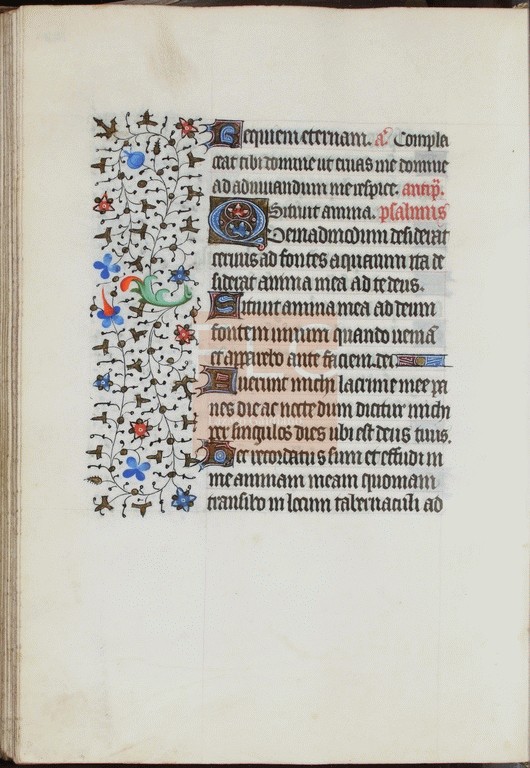 Requiem eternam. a. Compla
ceat tibi domine ut eruas me domine
ad adiuuandum me respice. antiph.
Sitiuit anima. psalmus
Quemadmodum desiderat
ceruus ad fontes aquarum ita de
siderat anima mea ad te deus.
Sitiuit anima mea ad deum
fontem uiuum quando ueniā
et apparebo ante faciem dei
Fuerunt michi lacrime mee pa
nes die ac nocte dum dicitur michi
per singulos dies ubi est deus tuus.
Hec recordatus sum et effudi in
me animam meam quoniam
transibo in locum tabernaculi ad